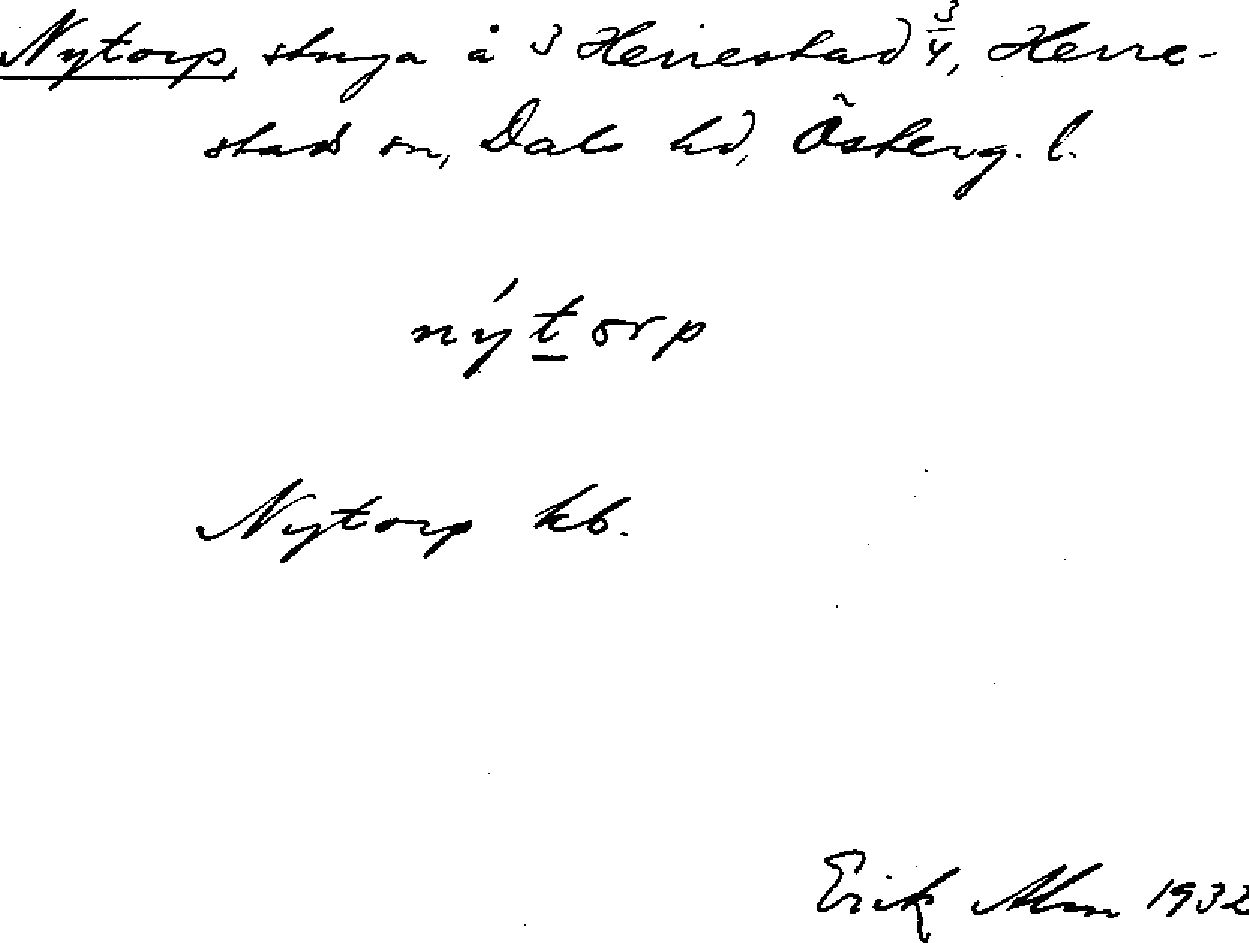 Nytorp, stuga å 3 Herrestad 3/4, Herre-
stads sn, Dals hd, Österg. l.
nýtorp
Nytorp kb.
Erik Alm 1932